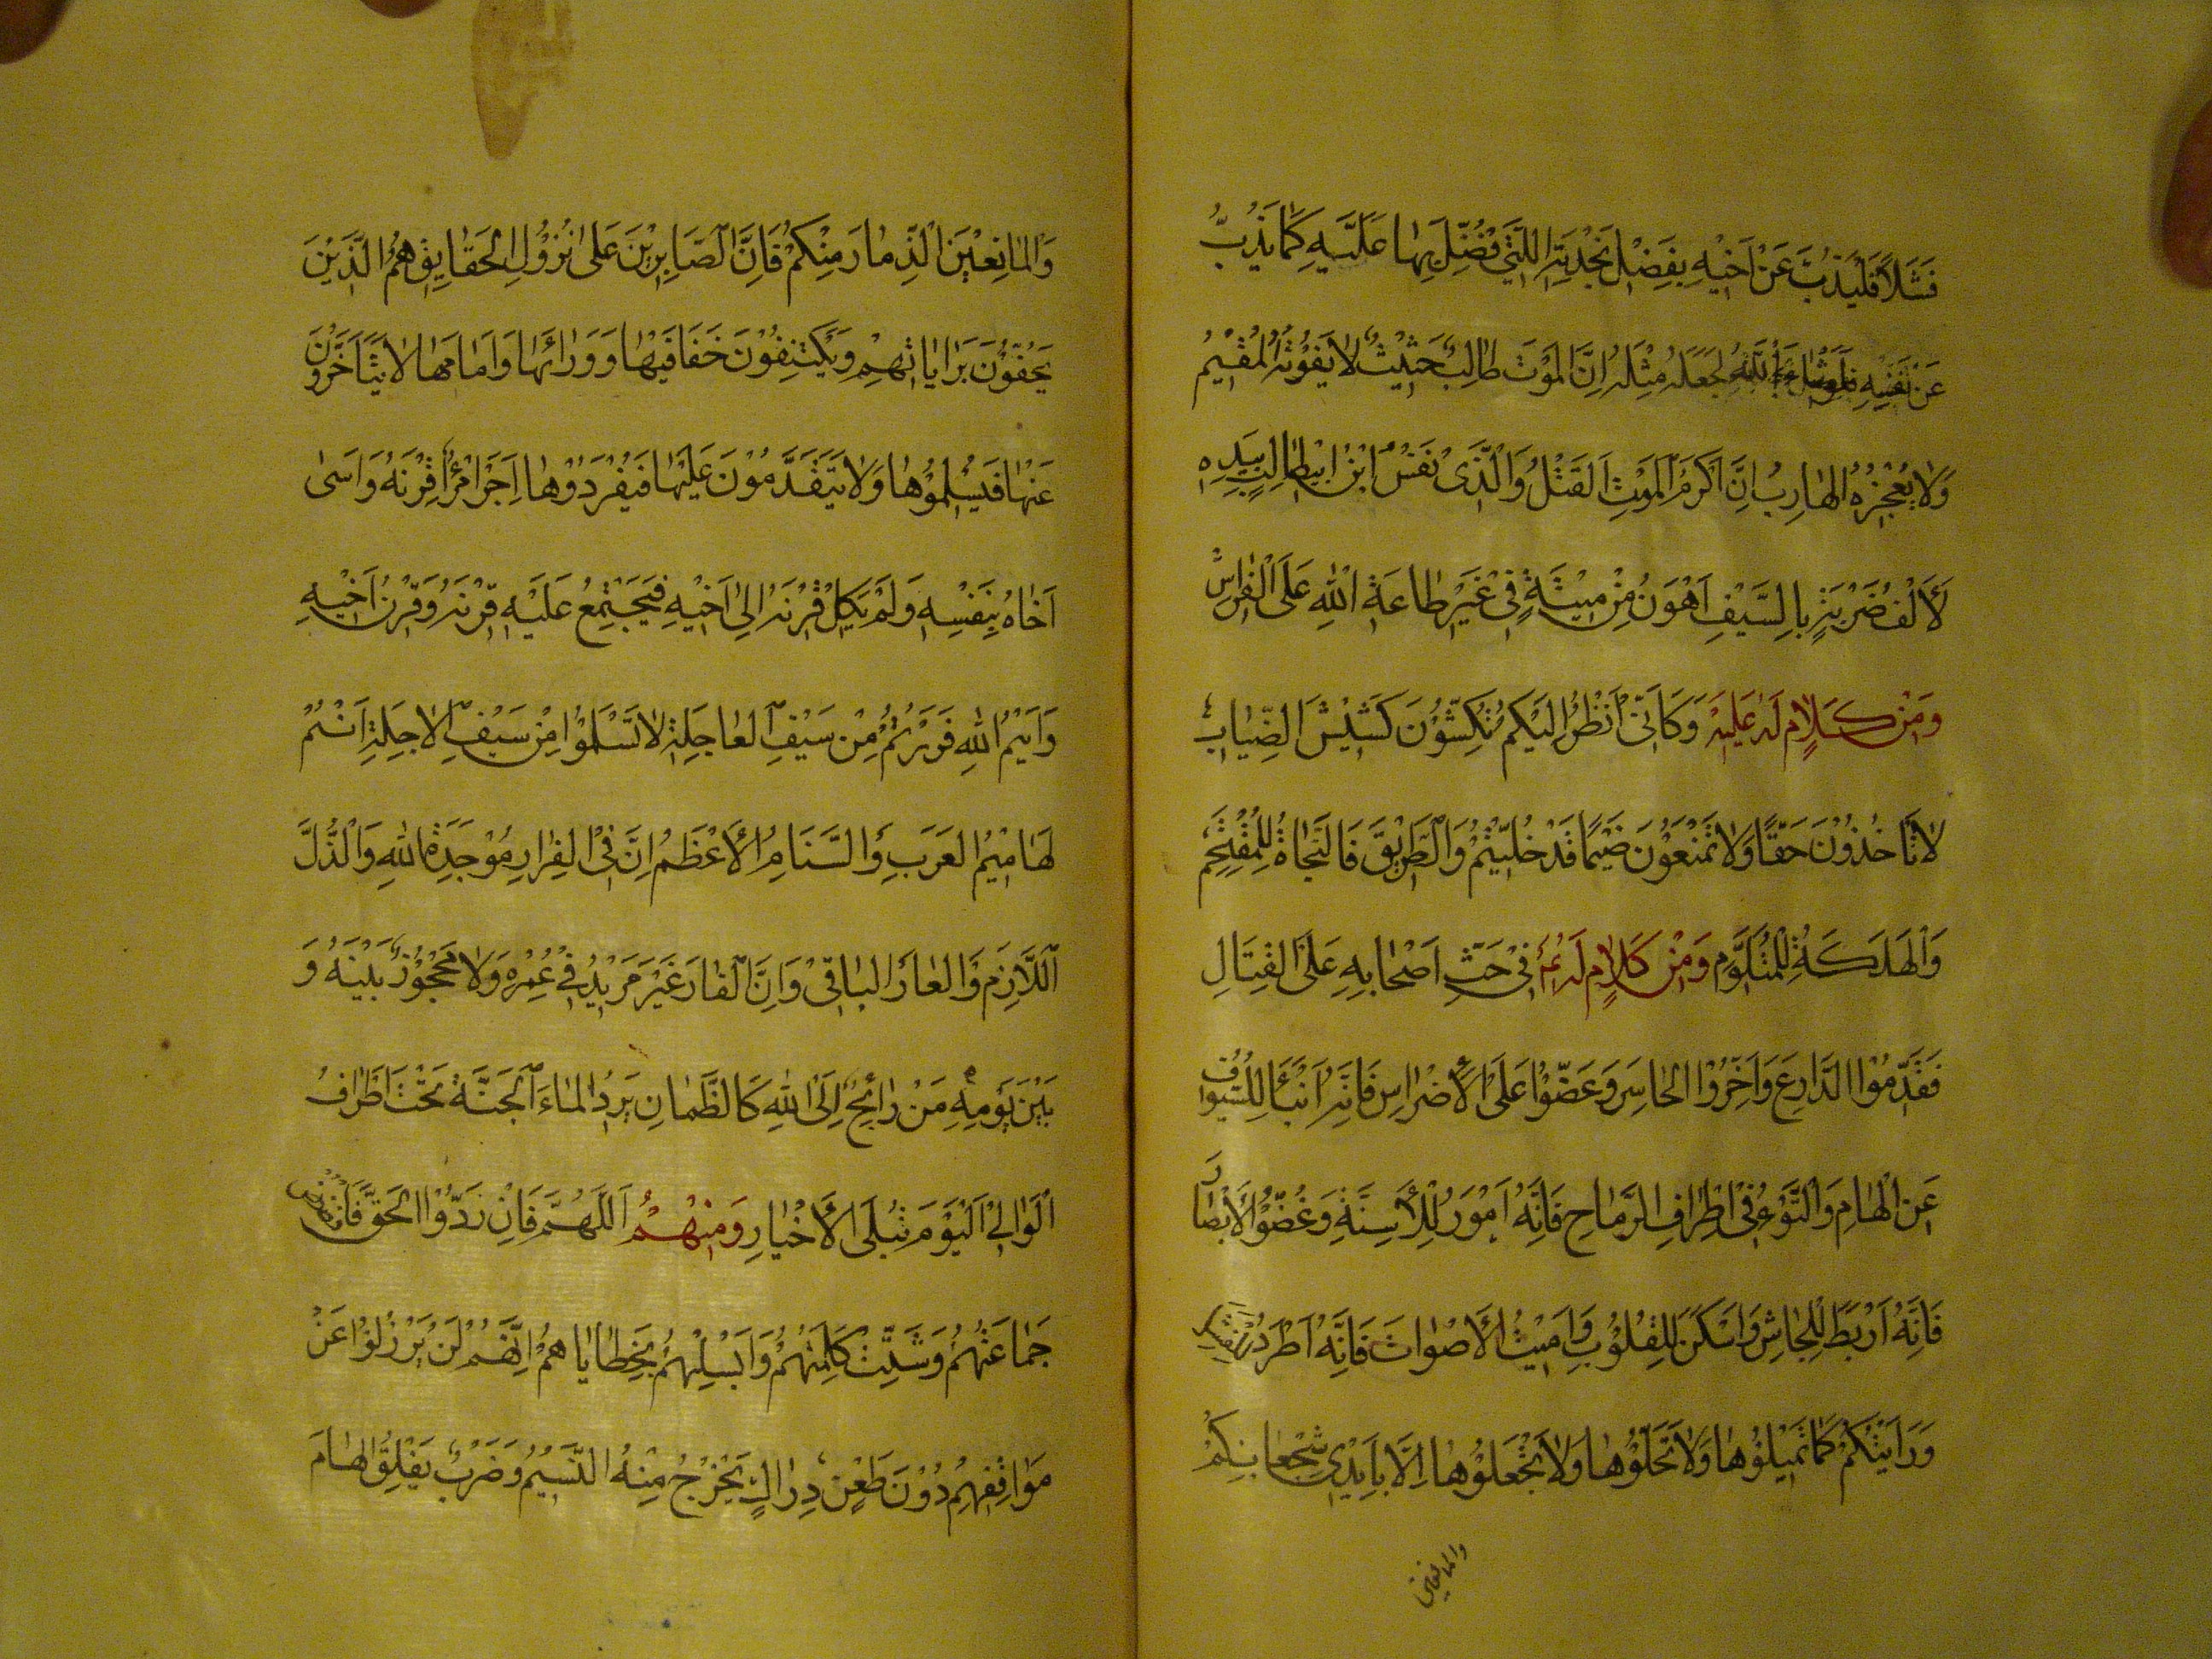 فَشَلاً فَلْيَذُبَّ عَنْ اَخيْهِ بِفَضْلِ نَجْدَتِهِ الَّتِي فُضِّلَ بِهَا عَلَيْهِ كَمَا يَذُبُّ
عَنْ نَفْسِهِ فَلَوْ شَاءَ اللّٰهُ لَجَعَلَهُ مِثْلَهُ اِنَّ الْمَوْتَ طَالِبٌ حَثِيْثٌ لَا يَفُوْتُهُ الْمُقِيْمُ
وَلَا يُعْجِزُهُ الْهَارِبُ اِنَّ اَكْرَمَ الْمَوْتِ اَلْقَتْلُ وَالَّذِى نَفْسُ ابْنِ اَبِيطَالِبٍ بِيَدِهِ
لَأَلْفُ ضَرْبَةٍ بِالسَّيْفِ اَهْوَنُ مِنْ مِيْتَةٍ فِي غَيْرِ طَاعَةِ اللّٰهِ عَلَى الْفِرَاشِ
وَمِنْ كَلَامٍ لَهُ عَلَيْهِ وَكَاَنِّى اَنْظُرُ اِلَيْكُمْ تَكِشُّوْنَ كَشِيْشَ الضِّبَابِ
لَا تَأخُذُوْنَ حَقًّا وَلَا تَمْنَعُوْنَ ضَيْمًا قَدْ خُلِّيْتُمْ وَالطَّرِيْقَ فَالنَّجَاةُ لِلْمُقْتَحِمِ
وَالْهَلَكَةُ لِلْمُتَلَوِّمِ وَمِنْ كَلَامٍ لَهُ عم فِيْ حَثِّ اَصْحَابِهِ عَلَى الْقِتَالِ
فَقَدِّمُوا الدَّارِعَ وَاَخِّرُوا الْحَاسِرَ وَعَضُّوْا عَلَى الْأَضْرَاسِ فَاِنَّهُ اَنْبَأُ لِلسُّيُوْفِ
عَنِ الْهَامِ وَالْتَوُوْا فِيْ اَطْرَافِ الرِّمَاحِ فَاِنَّهُ اَمْوَرُ لِلْأَسِنَّةِ وَغُضُّوْا الْاَبْصَارَ
فَاِنَّهُ اَرْبَطُ لِلْجَاشِ وَاَسْكَنُ لِلْقُلُوْبِ وَاَمِيْتُوا الْأَصْوَاتَ فَاِنَّهُ اَطْرَدُ لِلْفَشَلِ
وَرَايَتَكُمْ كَمَا تَمِيْلُوْهَا وَلَا تُخَلُّوْهَا وَلَا تَجْعَلُوْهَا اِلَّا بِاَيْدِي شُجْعَانِكُمْ
والمانعين
وَالْمَانِعِيْنَ الذِّمَارَ مِنْكُمْ فَاِنَّ الصَّابِرِيْنَ عَلَى نُزُوْلِ الْحَقَايِقِ هُمُ الَّذِيْنَ
يَحُفُّوْنَ بَرَايَاتِهِمْ وَيَكْتَنِفُوْنَ حَفَافَيْهَا وَوَرَائَهَا وَاَمَامَهَا لَا يَتَاَخَّرُوْنَ
عَنْهَا فَيُسْلِمُوْهَا وَلَا يَتَقَدَّمُوْنَ عَلَيْهَا فَيُفْرِدُوْهَا اَجْزَاَ امْرُؤٌ قِرْنَهُ وَاَسَى
اَخَاهُ بِنَفْسِهِ وَلَمْ يَكِلْ قِرْنَهُ اِلَى اَخِيْهِ فَيَجْتَمِعُ عَلَيْهِ قِرْنُهُ وَقِرْنُ اَخِيْهِ
وَاَيْمُ اللّٰهِ فَرَرْتُمْ مِنْ سَيْفِ الْعَاجِلَةِ لَا تَسْلَمُوْا مِنْ سَيْفِ الْاٰجِلَةِ اَنْتُمْ
لَهَامِيْمُ الْعَرَبِ وَالسَّنَامُ الْأَعْظَمُ اِنَّ فِي الْفِرَارِ مَوْجِدَةَ اللّٰهِ وَالذُّلَّ
اللَّازِمَ وَالْعَارَ الْبَاقِيْ وَاِنَّ الْفَارَّ غَيْرُ مَزِيْدٍ فِيْ عُمْرِهِ وَلَا مَحْجُوْزٌ بَيْنَهُ وَ
بَيْنَ يَوْمِهِ مَنْ رَائِحٌ اِلَى اللّٰهِ كَالظَّمْاٰنِ يَرِدُ الْمَاءَ اَلْجَنَّةُ تَحْتَ اَطْرَافِ
الْعَوَالِيْ اَلْيَوْمَ تُبْلَى الْأَخْبَارُ وَمِنْهُمْ اَللّٰهُمَّ فَاِنْ رَدُّوْا الْحَقَّ فَافْضُضْ
جَمَاعَتَهُمْ وَشَتِّتْ كَلِمَتَهُمْ وَاَبْسِلْهُمْ بِخَطَايَاهُمْ اِنَّهُمْ لَنْ يَزُوْلُوْا عَنْ
مَوَاقِفِهِمْ دُوْنَ طَعْنٍ دِرَاكٍ يَخْرُجُ مِنْهُ النَّسِيْمُ وَضَرْبٍ يَفْلِقُ الْهَامَ